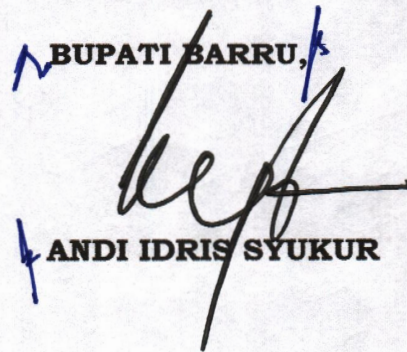 BUPATI BARRU,
ANDI IDRIS SYUKUR